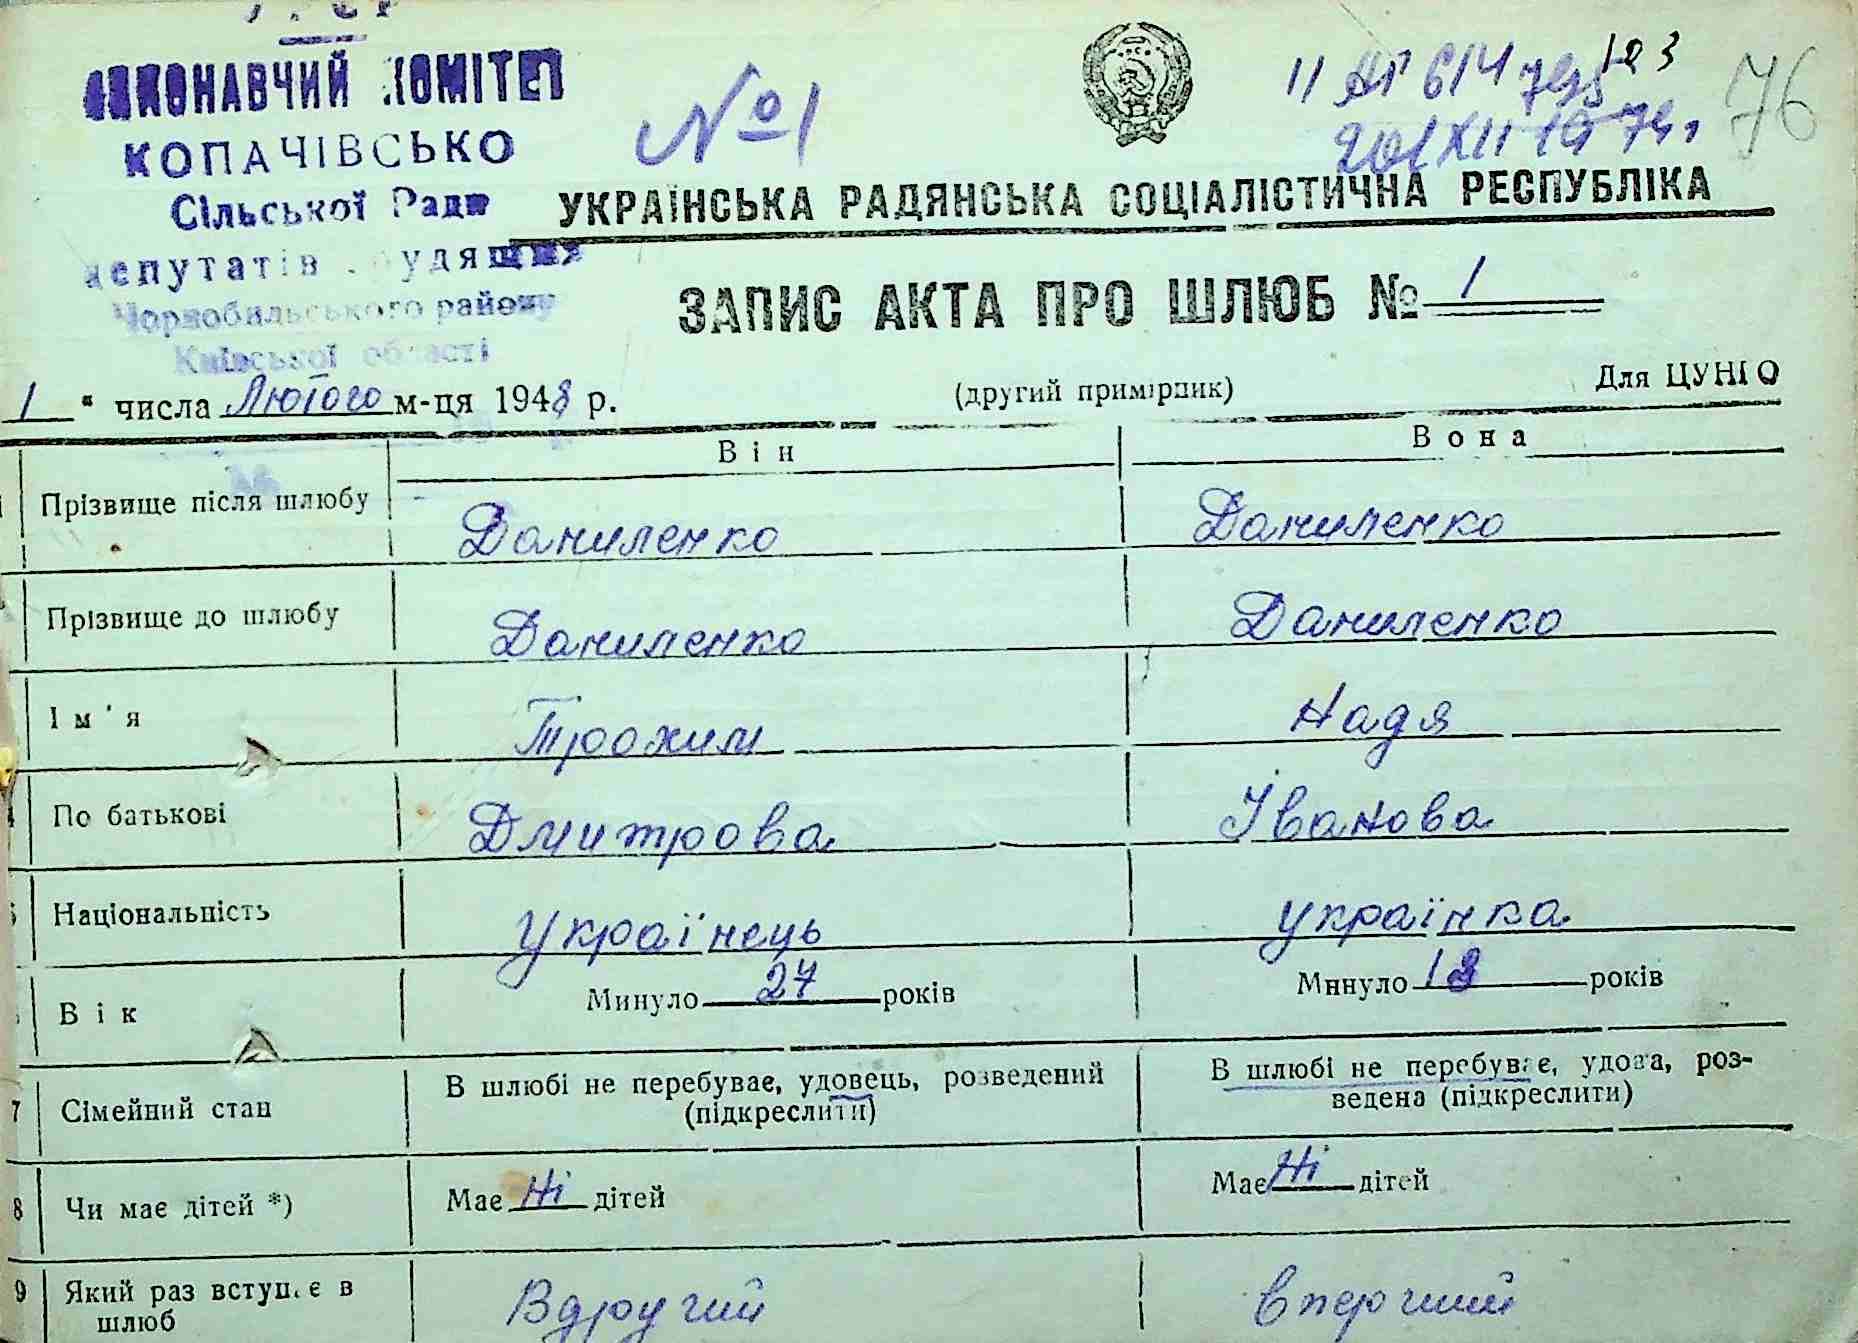 ВИКОНАВЧИЙ КОМІТЕТ
КОПАЧІВСЬКО
Сільської Ради
депутатів трудящих
Чорнобильського району
Київської області
№ 1
123
76
20/XII 1974.
УКРАЇНСЬКА РАДЯНСЬКА СОЦІАЛІСТИЧНА РЕСПУБЛІКА
ЗАПИС АКТА ПРО ШЛЮБ № 1
1 " числа Лютого м-ця 1948 р.
(другий примірник)
Для ЦУНГО
Він
Вона
Прізвище після шлюбу Даниленко Даниленко
Прізвище до шлюбу Даниленко Даниленко
Ім'я Трохим Надя
4 По батькові Дмитрова Іванова
5 Національність Українець українка
Вік Минуло 27 років Минуло 18 років
7 Сімейний стан В шлюбі не перебуває, удовець, розведений (підкреслити) В шлюбі не перебуває, удова, роз-
ведена (підкреслити)
8 Чи має дітей *) Має Ні дітей Має Ні дітей
9 Який раз вступає в шлюб Вдругий вперший